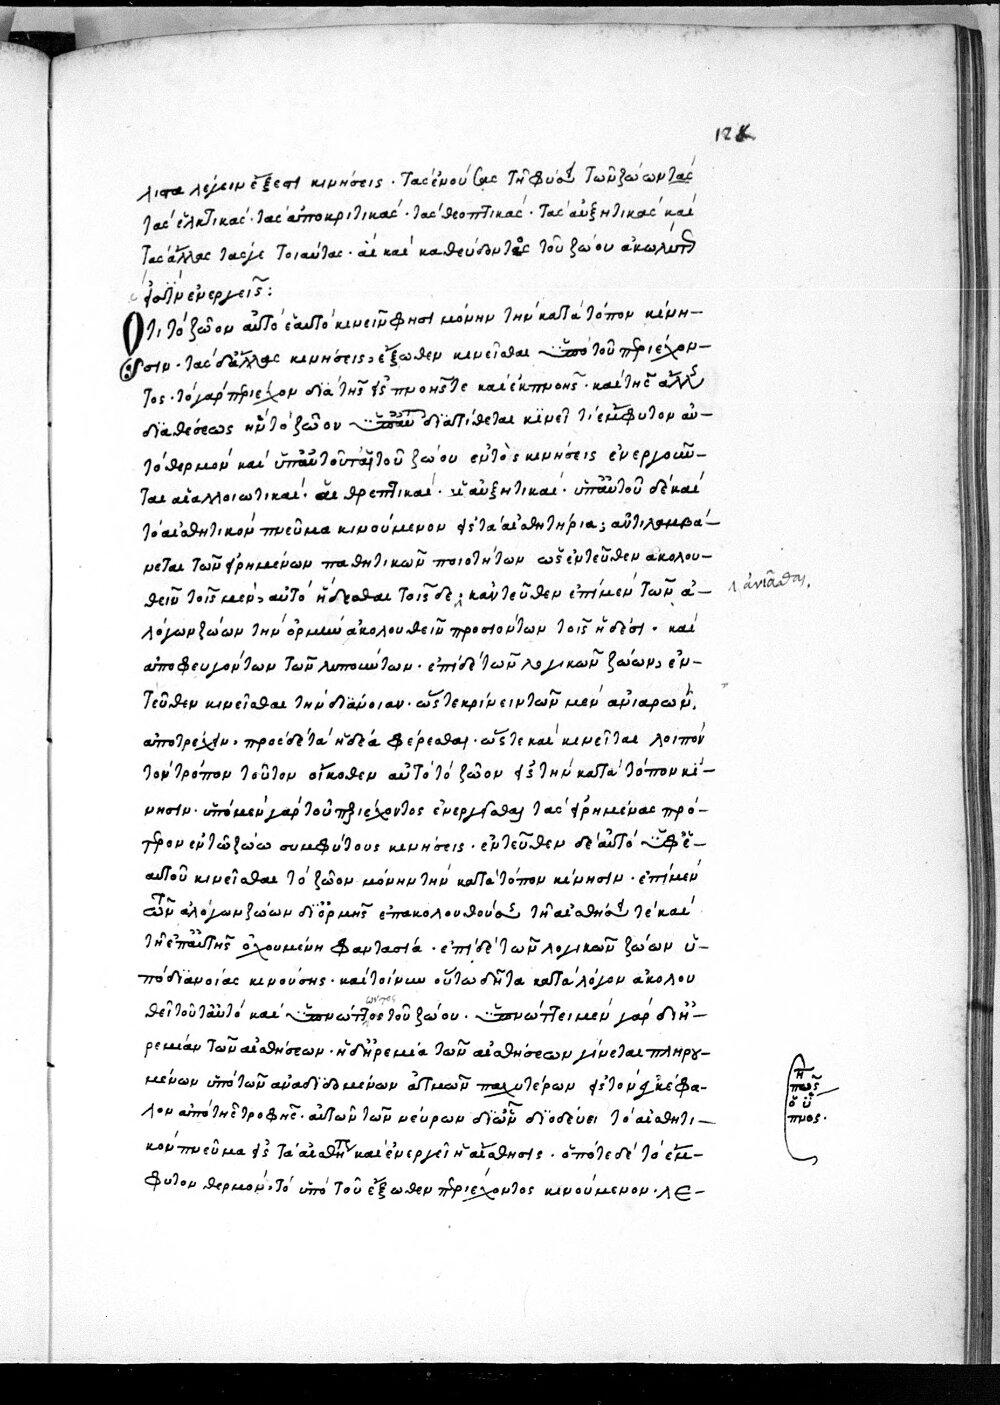 12
λιστα λέγειν ἔξεστι κινήσεις · τὰς ἐνούσας τῇ φύσει τῶν ζώων τὰς
τὰς ἑλκτικάς · τὰς ἀποκριτικάς · τὰς θρεπτικάς · τὰς αὐξητικὰς καὶ
τὰς ἄλλας τὰς γε τοιαύτας · αἳ καὶ καθεύδοντος τοῦ ζώου ἀκωλύτως
εἰσὶν ἐνεργεῖς :
Ὅτι τὸ ζῷον αὐτὸ ἑαυτὸ κινεῖν φησὶ μόνην τὴν κατὰ τόπον κίνη-
σιν · τὰς δ' ἄλλας κινήσεις, ἔξωθεν κινεῖσθαι ὑπὸ τοῦ περιέχον-
τος · τὸ γὰρ περιέχον διὰ τῆς εἰσπνοῆς τε καὶ ἐκπνοῆς · καὶ τῆς ἄλλης
διαθέσεως ἣν τὸ ζῷον ὑπ' αὐτοῦ διατίθεται κινεῖ τι ἔμφυτον αὐ-
τὸ θερμὸν καὶ ὑπ' αὐτοῦ τοῦ ζώου ἐντὸς κινήσεις ἐνεργοῦν-
ται αἱ ἀλλοιωτικαὶ · αἱ θρεπτικαὶ · αἱ αὐξητικαὶ · ὑπ' αὐτοῦ δὲ καὶ
τὸ αἰσθητικὸν πνεῦμα κινούμενον εἰς τὰ αἰσθητήρια, ἀντιλαμβά-
νεται τῶν εἰρημένων παθητικῶν ποιοτήτων ὡς ἐντεῦθεν ἀκολου-
θεῖν τοῖς μὲν, αὐτὸ ἥδεσθαι τοῖς δὲ, κἀντεῦθεν ἐπὶ μὲν τῶν ἀ-
ἀνιᾶσθαι.
λόγων ζώων τὴν ὁρμὴν ἀκολουθεῖν προσιόντων τοῖς ἡδέσι · καὶ
ἀποφευγόντων τῶν λυπούντων · ἐπὶ δὲ τῶν λογικῶν ζώων, ἐν-
τεῦθεν κινεῖσθαι τὴν διάνοιαν · ὥστε κρίνειν τῶν μὲν ἀνιαρῶν,
ἀποτρέχειν, πρὸς δὲ τὰ ἡδέα φέρεσθαι · ὥστε καὶ κινεῖται λοιπὸν
τὸν τρόπον τοῦτον οἴκοθεν αὐτὸ τὸ ζῷον εἰς τὴν κατὰ τόπον κί-
νησιν · ὑπὸ μὲν γὰρ τοῦ περιέχοντος ἐνεργεῖσθαι τὰς εἰρημένας πρό-
τερον ἐν τῷ ζώῳ συμφύτους κινήσεις · ἐντεῦθεν δὲ αὐτὸ ὑφ' ἑ-
αυτοῦ κινεῖσθαι τὸ ζῷον μόνην τὴν κατὰ τόπον κίνησιν · ἐπὶ μὲν
τῶν ἀλόγων ζώων δι' ὁρμῆς ἐπακολουθούσης τῇ αἰσθήσει τε καὶ
τῇ ἐπ' αὐτῆς ὀχουμένῃ φαντασίᾳ · ἐπὶ δὲ τῶν λογικῶν ζώων ὑ-
πὸ διανοίας κινούσης · καὶ τοίνυν οὕτω δῆτα κατὰ λόγον ἀκολου
θεῖ τοῦτ' αὐτὸ καὶ ὑπνώττοντος τοῦ ζώου · ὑπνώττει μὲν γὰρ δι' ἠ-
ρεμίαν τῶν αἰσθήσεων · ἡ δ' ἠρεμία τῶν αἰσθήσεων γίνεται πληρου-
πῶς
ὁ ὕ
πνος.
μένων ὑπὸ τῶν ἀναδιδομένων ἀτμῶν παχυτέρων εἰς τὸν ἐγκέφα-
λον ἀπὸ τῆς τροφῆς · αὐτῶν τῶν νεύρων δι' ὧν διοδεύει τὸ αἰσθητι-
κὸν πνεῦμα εἰς τὰ αἰσθητήρια καὶ ἐνεργεῖ ἡ αἴσθησις · ὁπότε δὲ τὸ ἔμ-
φυτον θερμὸν, τὸ ὑπὸ τοῦ ἔξωθεν περιέχοντος κινούμενον · λε-